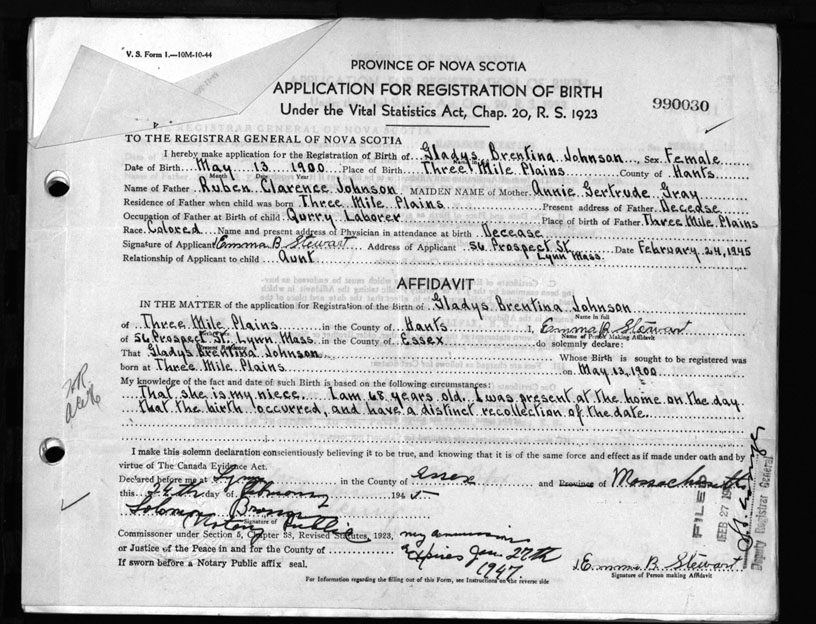 V. S. Form 1.—10M-10-44
PROVINCE OF NOVA SCOTIA
APPLICATION FOR REGISTRATION OF BIRTH
Under the Vital Statistics Act, Chap. 20, R. S. 1923
990030
TO THE REGISTRAR GENERAL OF NOVA SCOTIA
I hereby make application for the Registration of Birth of Gladys Brentina Johnson Sex Female
Date of Birth May 13 1900 Place of Birth Three Mile Plains County of Hants
Name of Father Ruben Clarence Johnson MAIDEN NAME of Mother Annie Gertrude Gray
Residence of Father when child was born Three Mile Plains Present address of Father Decease
Occupation of Father at Birth of child Qurry Laborer Place of birth of Father Three Mile Plains
Race Colored Name and present address of Physician in attendance at birth Decease
Signature of Applicant Emma B Stewart Address of Applicant 56 Prospect St Lynn Mass. Date February 24, 1945
Relationship of Applicant to child Aunt
AFFIDAVIT
IN THE MATTER of the application for Registration of the Birth of Gladys Brentina Johnson
Name in full
of Three Mile Plains in the County of Hants I, Emma B. Stewart
Name of Person Making Affidavit
of 56 Prospect St. Lynn Mass in the County of Essex do solemnly declare:
Present Residence
That Gladys Brentina Johnson Whose Birth is sought to be registered was
born at Three Mile Plains on May 13, 1900
My knowledge of the fact and date of such Birth is based on the following circumstances:
That she is my niece. I am 68 years old. I was present at the home on the day
that the birth occurred, and have a distinct recollection of the date.
I make this solemn declaration conscientiously believing it to be true, and knowing that it is of the same force and effect as if made under oath and by
virtue of The Canada Evidence Act.
Declared before me at Lynn in the County of Essex and Province of Massachusetts
this 24th day of February 1945
Solomon
Notary Public
Signature of
Commissioner under Section 5, Chapter 38, Revised Statutes, 1923,
or Justice of the Peace in and for the County of
If sworn before a Notary Public affix seal.
my commission
expires Jan. 27th
1947
FILED
FEB 27 19
Deputy Registrar General
Emma B Stewart
Signature of Person making Affidavit
For Information regarding the filling out of this Form, see Instructions on the reverse side